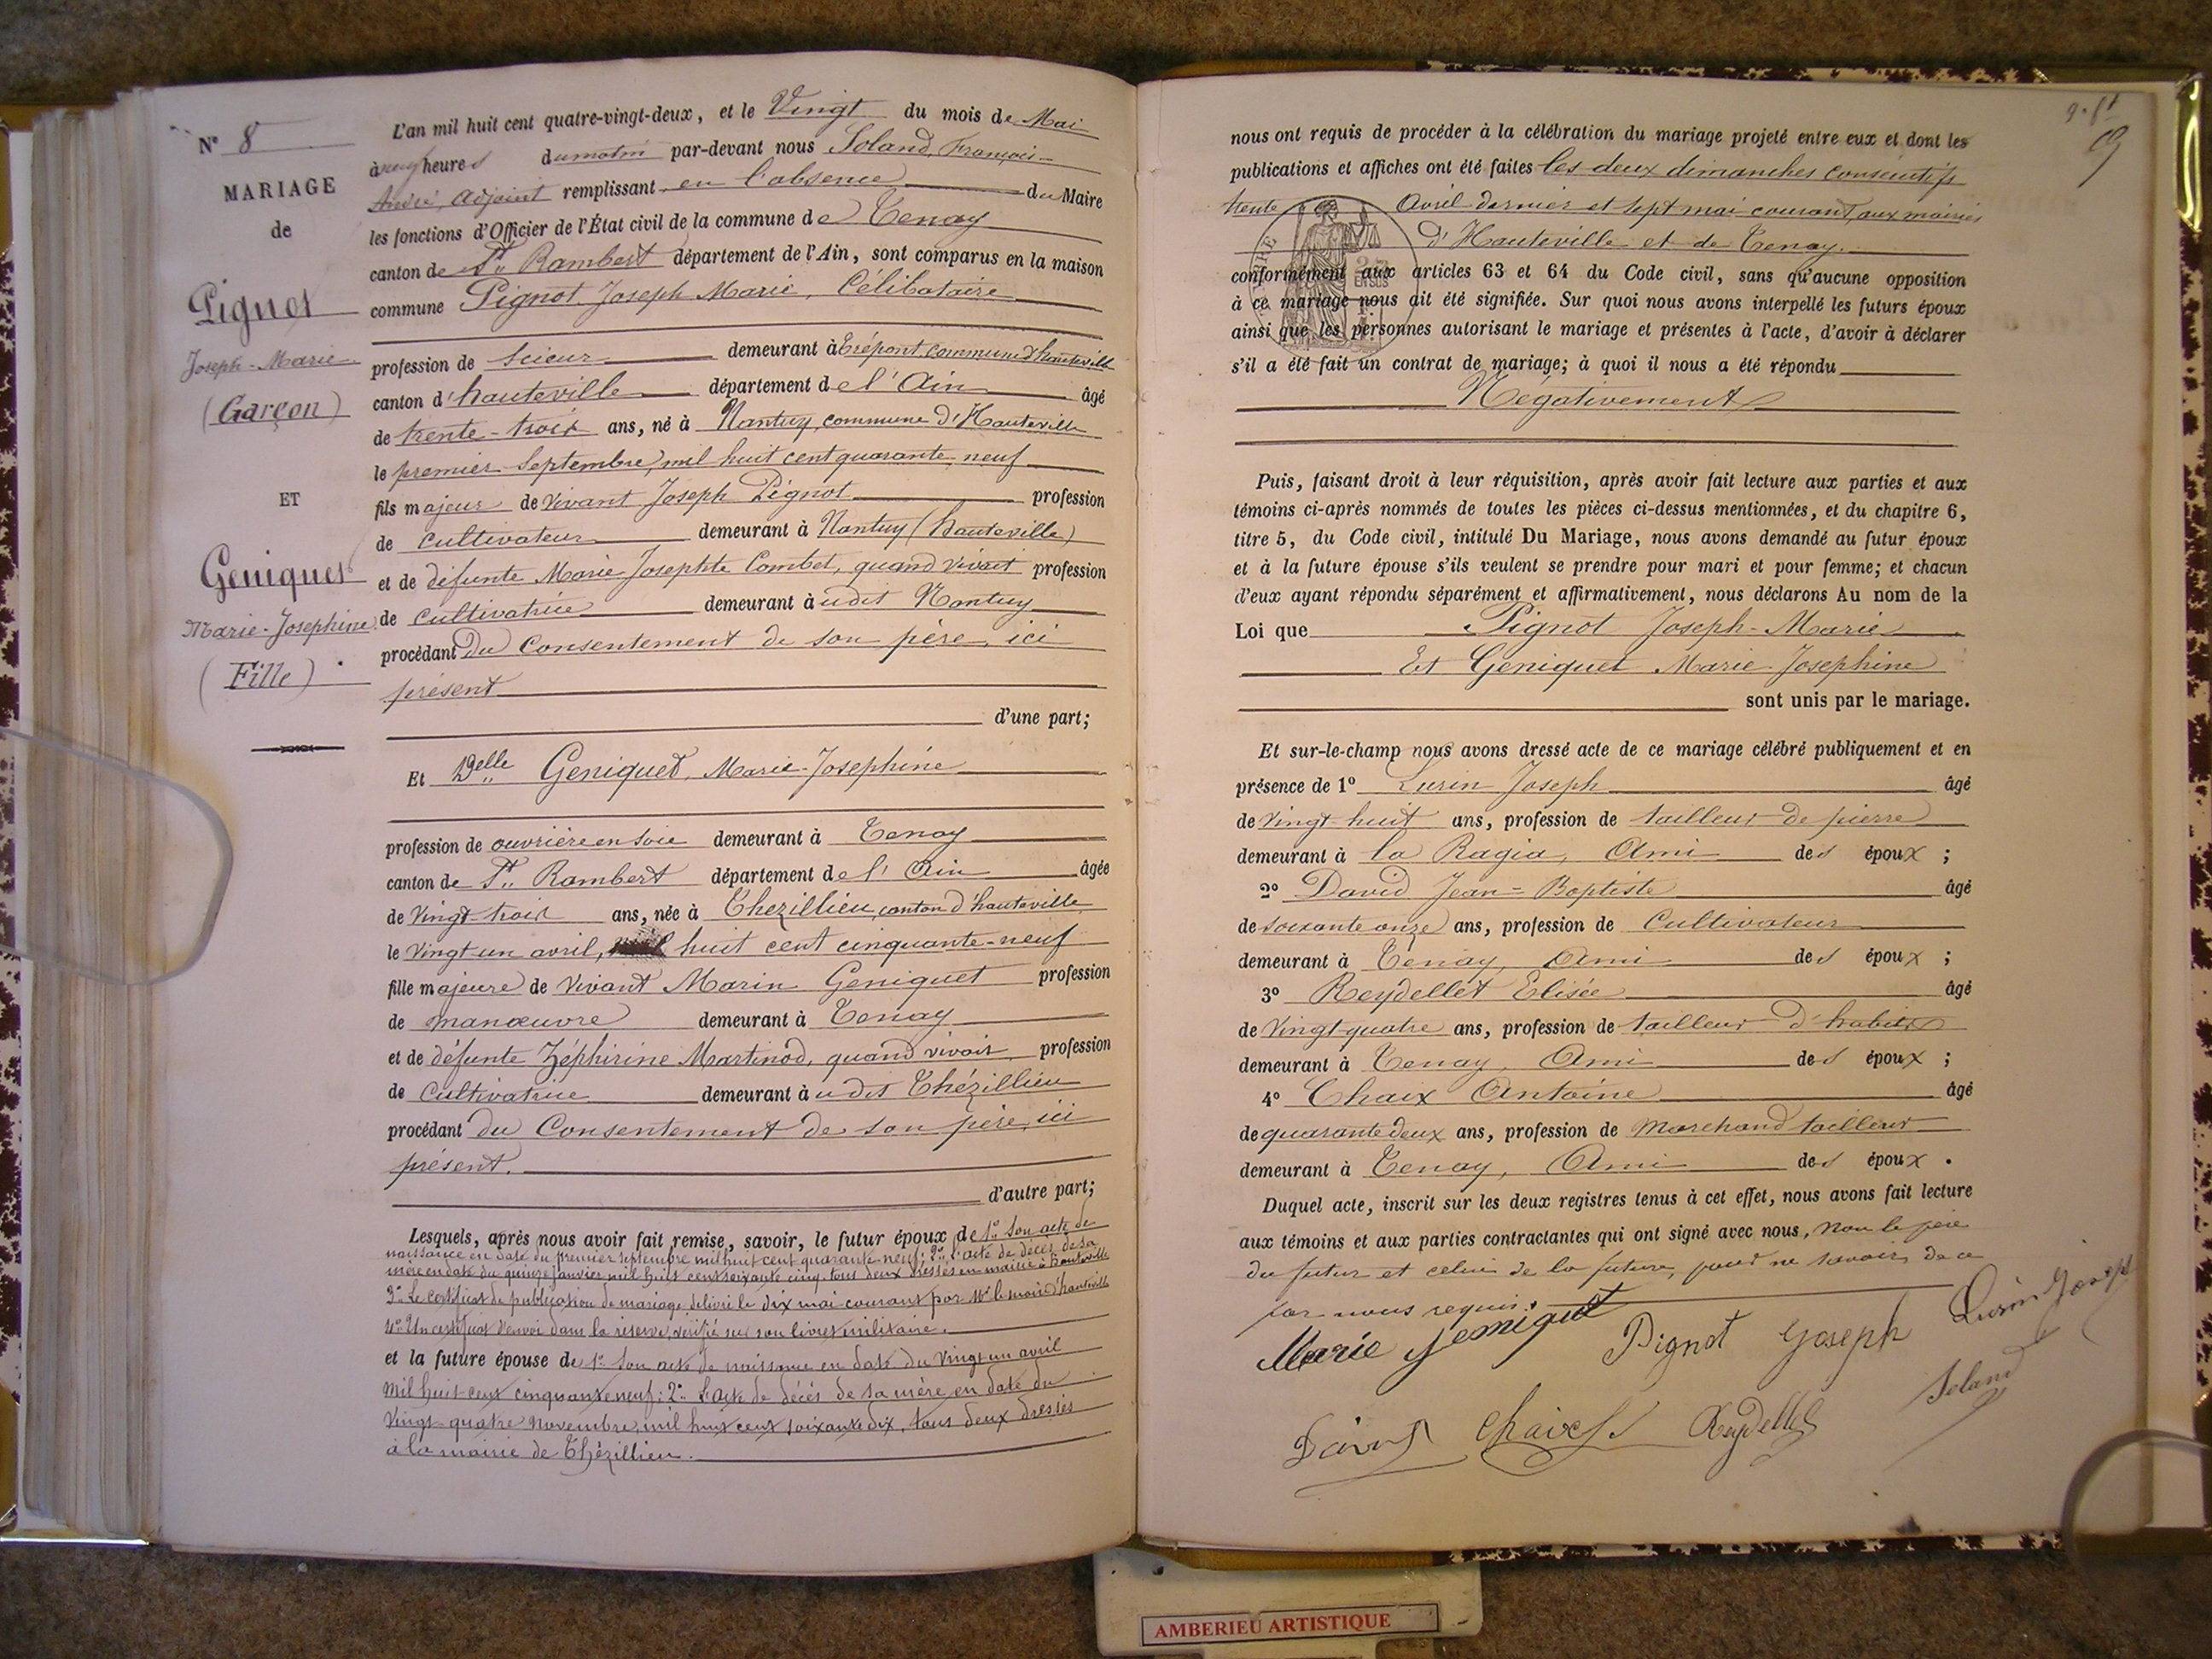 N° 8
MARIAGE
de
Pignot
Joseph-Marie
(Garçon)
ET
Geniquet
Marie-Josephine
(Fille)
L'an mil huit cent quatre-vingt-deux, et le Vingt du mois de Mai
à neuf heures du matin par-devant nous Soland, François-
André, Adjoint remplissant en l'absence du Maire
les fonctions d'Officier de l'État civil de la commune de Tenay
canton de St. Rambert département de l'Ain, sont comparus en la maison
commune Pignot Joseph Marie, Célibataire
profession de Scieur demeurant à Trépont, commune d'hauteville
canton d'hauteville département de l'Ain âgé
de trente-trois ans, né à Nantuy, commune d'Hauteville
le premier Septembre, mil huit cent quarante neuf
fils majeur de vivant Joseph Pignot profession
de cultivateur demeurant à Nantuy (hauteville)
et de défunte Marie Josephte Combet, quand vivait profession
de cultivatrice demeurant à udit Nantuy
procédant Du Consentement de son père, ici
présent
d'une part;
Et Delle Geniquet, Marie-Josephine
profession de ouvrière en soie demeurant à Tenay
canton de St. Rambert département de l'Ain âgée
de Vingt-trois ans, née à Thezillieu, canton d'hauteville
le Vingt-un avril, mil huit cent cinquante-neuf
fille majeure de vivant Marin Geniquet profession
de manœuvre demeurant à Tenay
et de défunte Zéphirine Martinod, quand vivait profession
de Cultivatrice demeurant à udit Thézillieu
procédant du Consentement de son père, ici
présent.
d'autre part;
Lesquels, après nous avoir fait remise, savoir, le futur époux de 1° Son acte de
naissance en date du premier septembre mil huit cent quarante neuf; 2° l'acte de décès de sa
mère en date du quinze janvier mil huit cent soixante cinq, tous deux dressés en mairie à hauteville
3° Le certificat de publication de mariage délivré le dix mai courant par Mr le maire d'hauteville
4° Un certificat d'envoi dans la réserve, vérifié sur son livret militaire.
et la future épouse de 1° Son acte de naissance en date du Vingt-un avril
mil huit cent cinquante neuf; 2° L'acte de décès de sa mère en date du
Vingt-quatre novembre, mil huit cent soixante dix, tous deux dressés
à la mairie de Thézillieu.
9
nous ont requis de procéder à la célébration du mariage projeté entre eux et dont les
publications et affiches ont été faites les deux dimanches consécutifs
trente Avril dernier et sept mai courant, aux mairies
d'Hauteville et de Tenay.
conformément aux articles 63 et 64 du Code civil, sans qu'aucune opposition
à ce mariage nous ait été signifiée. Sur quoi nous avons interpellé les futurs époux
ainsi que les personnes autorisant le mariage et présentes à l'acte, d'avoir à déclarer
s'il a été fait un contrat de mariage; à quoi il nous a été répondu
Négativement
Puis, faisant droit à leur réquisition, après avoir fait lecture aux parties et aux
témoins ci-après nommés de toutes les pièces ci-dessus mentionnées, et du chapitre 6,
titre 5, du Code civil, intitulé Du Mariage, nous avons demandé au futur époux
et à la future épouse s'ils veulent se prendre pour mari et pour femme; et chacun
d'eux ayant répondu séparément et affirmativement, nous déclarons Au nom de la
Loi que Pignot Joseph-Marie
Et Geniquet Marie-Josephine
sont unis par le mariage.
Et sur-le-champ nous avons dressé acte de ce mariage célébré publiquement et en
présence de 1° Lurin Joseph âgé
de Vingt-huit ans, profession de tailleur de pierre
demeurant à la Ragia, Ami des époux ;
2° David Jean-Baptiste âgé
de soixante onze ans, profession de Cultivateur
demeurant à Tenay, Ami des époux ;
3° Reydellet Elisée âgé
de Vingt-quatre ans, profession de tailleur d'habits
demeurant à Tenay, Ami des époux ;
4° Chaix Antoine âgé
de quarante deux ans, profession de Marchand tailleur
demeurant à Tenay, Ami des époux.
Duquel acte, inscrit sur les deux registres tenus à cet effet, nous avons fait lecture
aux témoins et aux parties contractantes qui ont signé avec nous, non le père
du futur et celui de la future, pour ne savoir, de ce
par nous requis.
Marie geniquet Pignot Joseph Lurin Joseph
David Chaix Reydellet Soland
AMBERIEU ARTISTIQUE